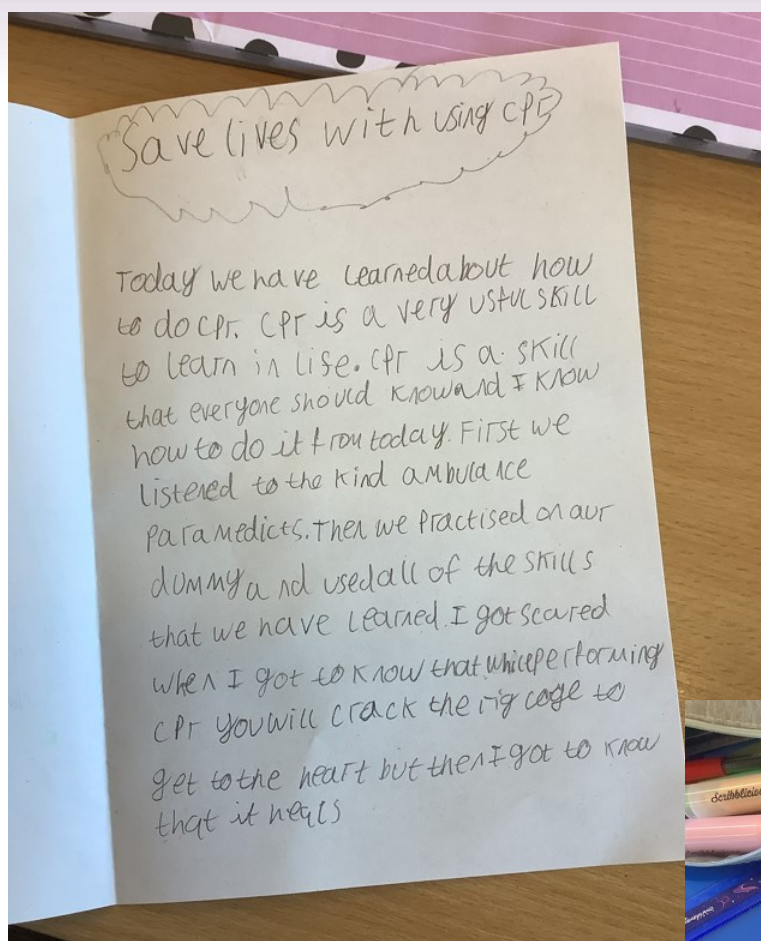 Save lives with using cpr
Today we have learned about how
to do cpr. cpr is a very usful skill
to learn in life. cpr is a skill
that everyone should know and I know
how to do it from today. First we
listened to the kind ambulance
paramedicts. Then we practised on our
dummy and used all of the skills
that we have learned. I got scared
when I got to know that while performing
cpr you will crack the rig cage to
get to the heart but then I got to know
that it heals